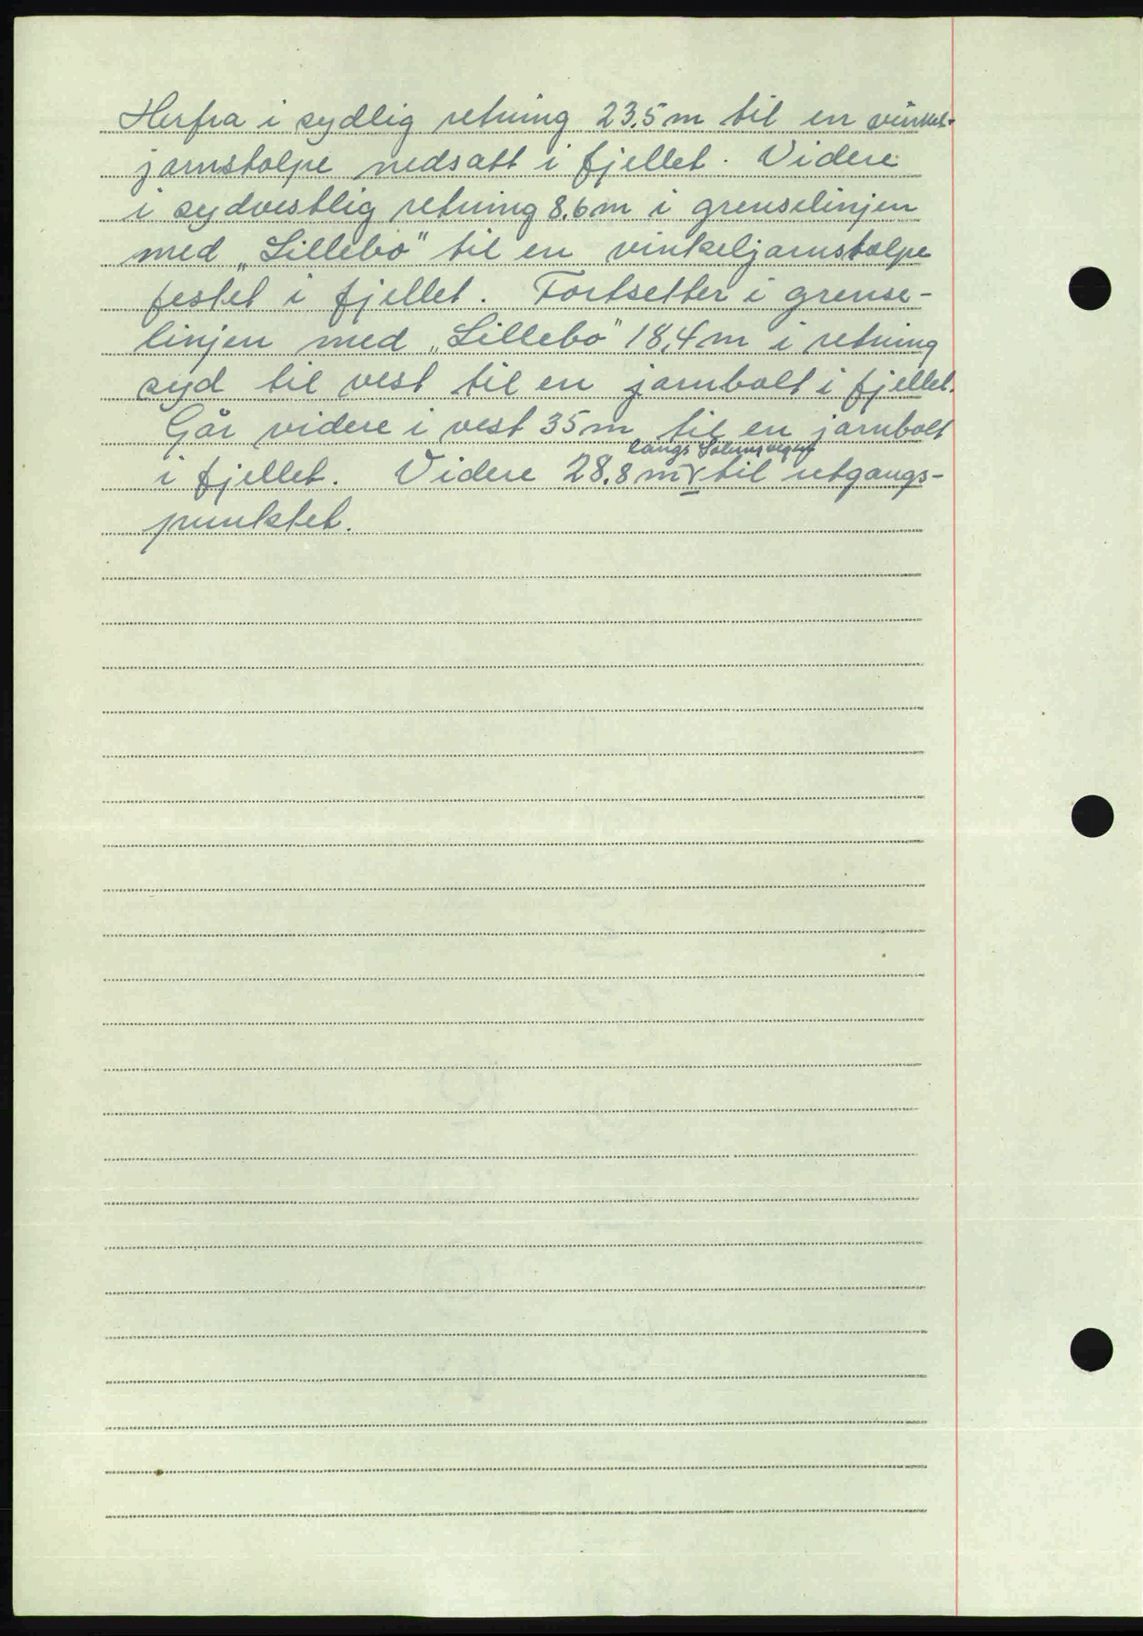 Herfra i sydlig retning 23.5 m til en vinkel-
jarnstolpe nedsatt i fjellet. Videre
i sydvestlig retning 8.6 m i grenselinjen
med „Lillebo" til en vinkeljarnstolpe
festet i fjellet. Fortsetter i grense-
linjen med „Lillebo" 18,4 m i retning
syd til vest til en jarnbolt i fjellet.
Går videre i vest 35 m til en jarnbolt
langs
i fjellet. Videre 28.8 m til utgangs-
punktet.